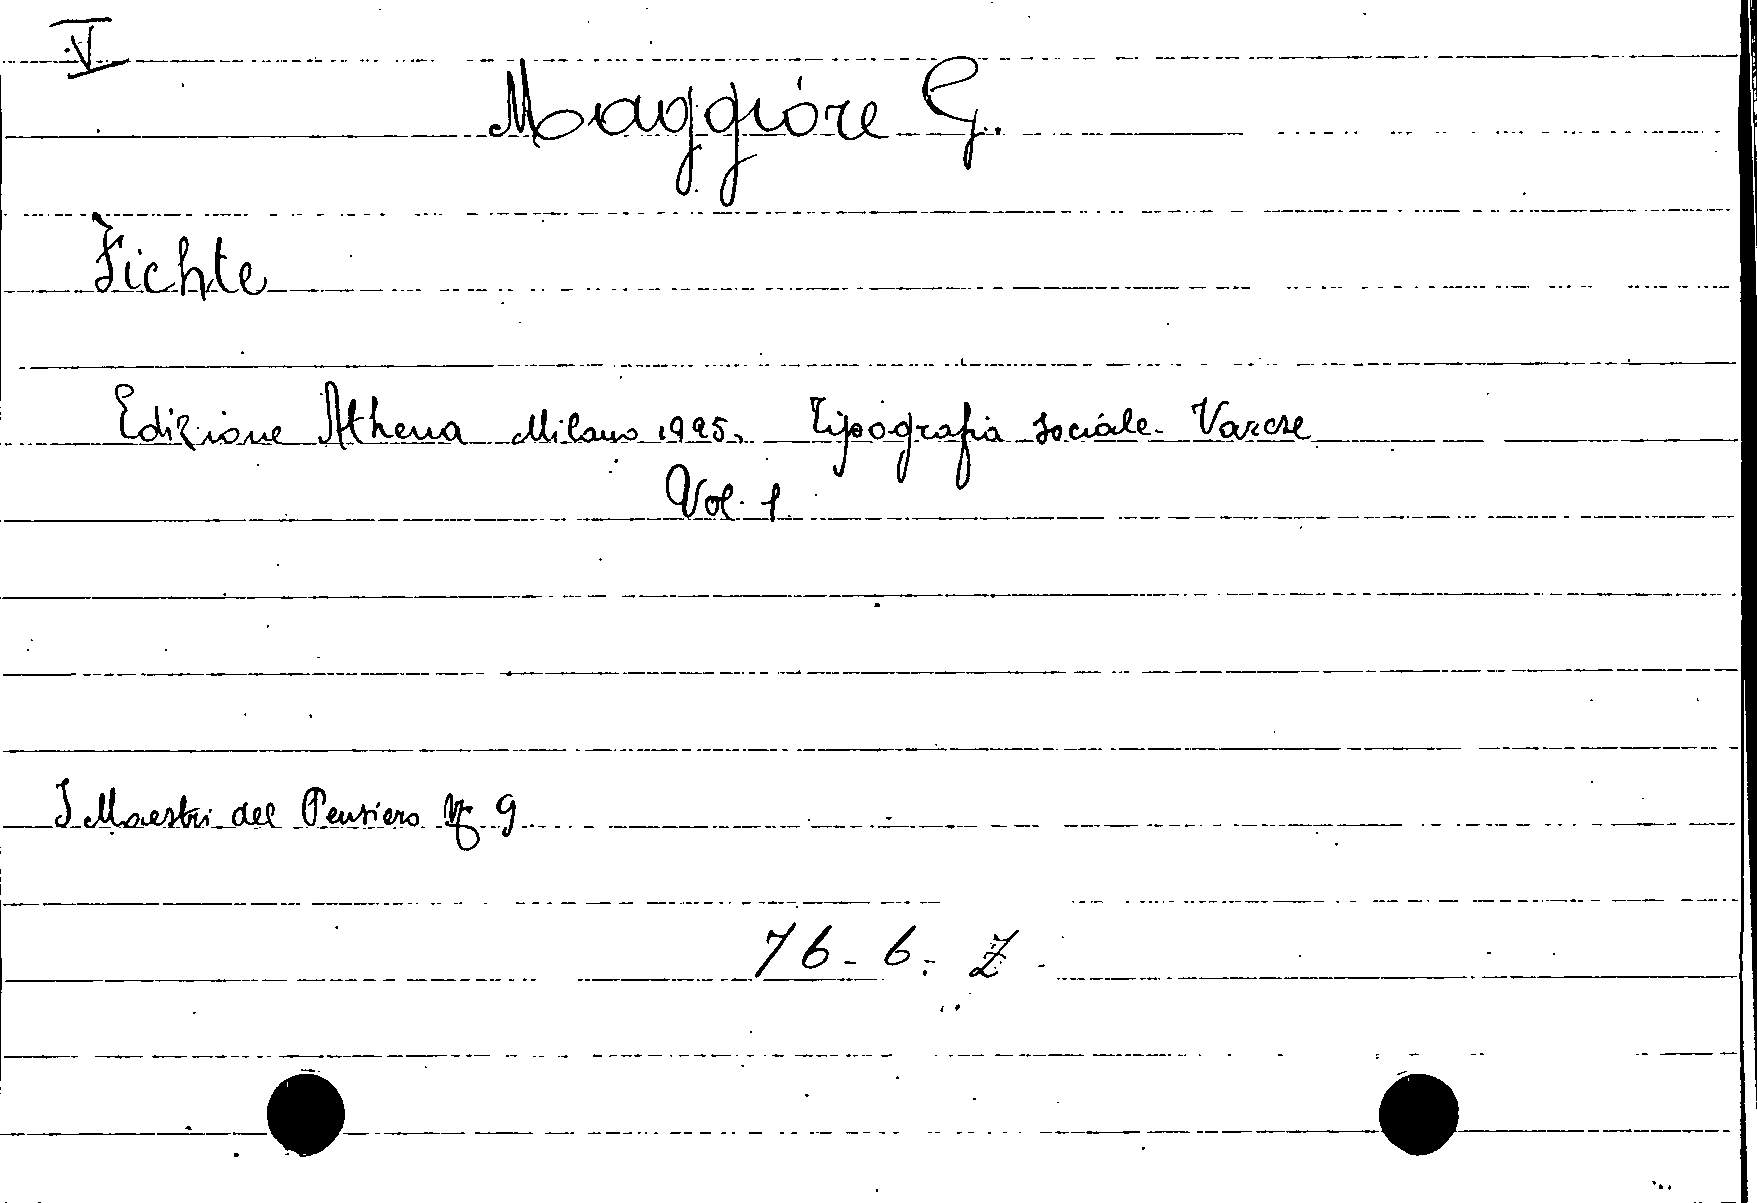 V
Maggiore G.
Fichte
Edizione Athena Milano 1925. Tipografia sociale. Varese
Vol. 1
I Maestri del Pensiero 9
76-6-Z